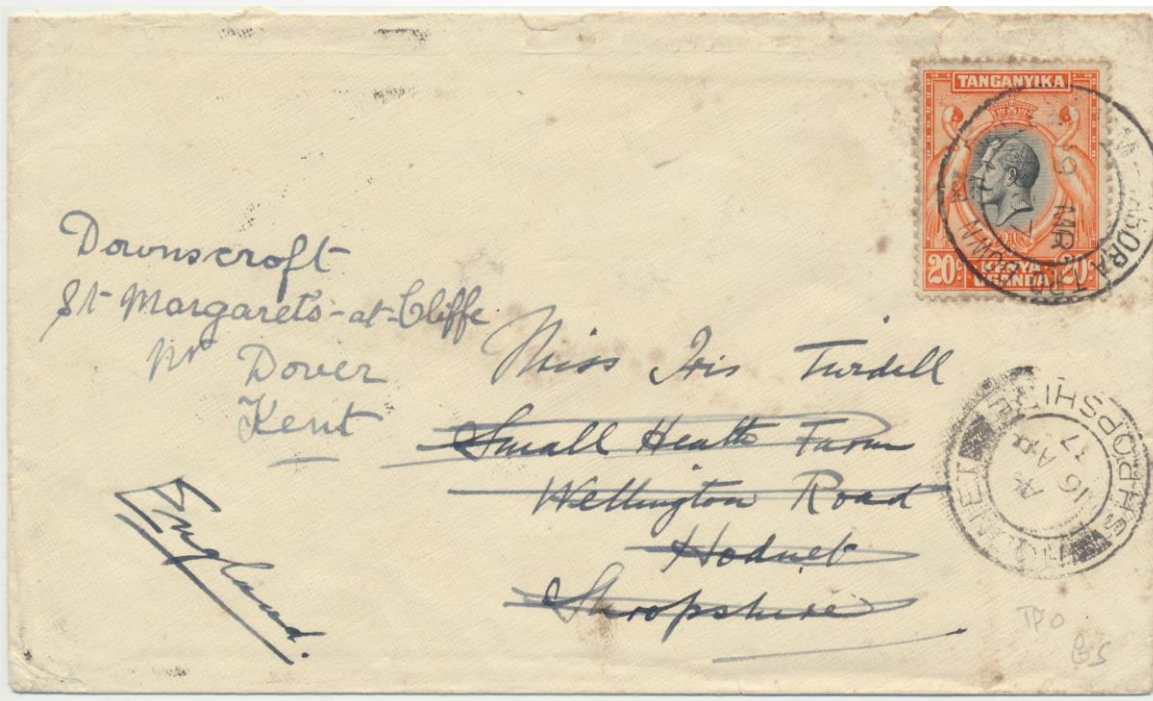 TANGANYIKA
20C KENYA 20C
UGANDA
TABORA T.P.O. DOWN
19 MR
Downscroft
St Margarets-at-Cliffe
Nr Dover
Kent
Miss Iris Turdell
Small Heath Farm
Wellington Road
Hodnet
Shropshire
England.
HODNET SHROPSHIRE
16 AP
37
TPO
GS